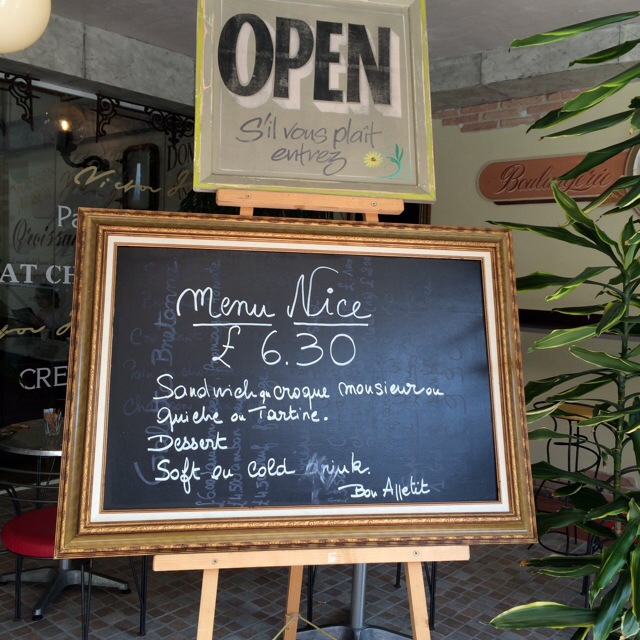 OPEN
S'il vous plait
entrez
Boulangerie
Croissan
AT CH
CRE
Menu Nice
£ 6.30
Sandwich ou croque monsieur ou
quiche ou Tartine.
Dessert
Soft ou cold drink.
Bon Appetit
Bretonne